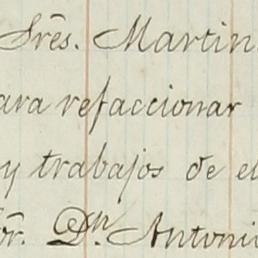 Sres. Martin
ara refaccionar
y trabajos de el
or. Dn. Antoni